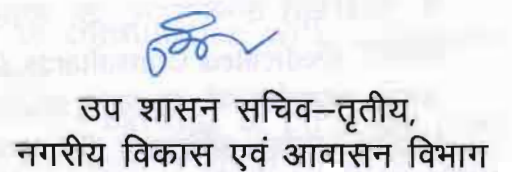 उप शासन सचिव–तृतीय,
नगरीय विकास एवं आवासन विभाग